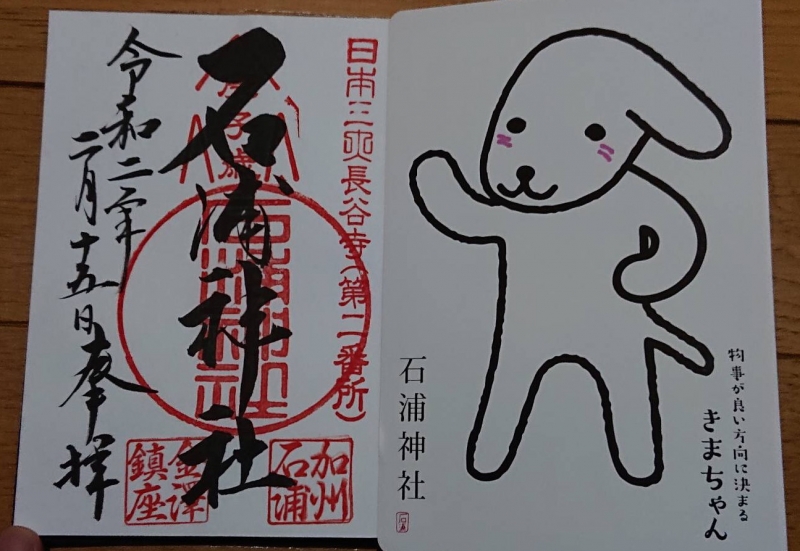 日本三大長谷寺(第二番所)
石浦神社
令和二年
二月十五日奉拝
加州
石浦
金澤
鎮座
石浦神社
物事が良い方向に決まる
きまちゃん
石浦神社